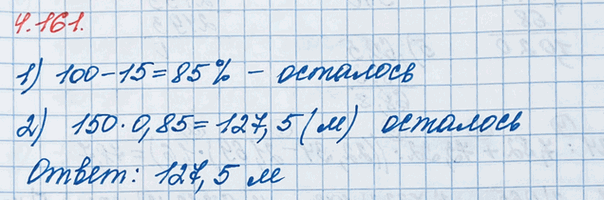 4.161.
1) 100-15=85% - осталось
2) 150·0,85=127,5(м) осталось
Ответ: 127,5 м